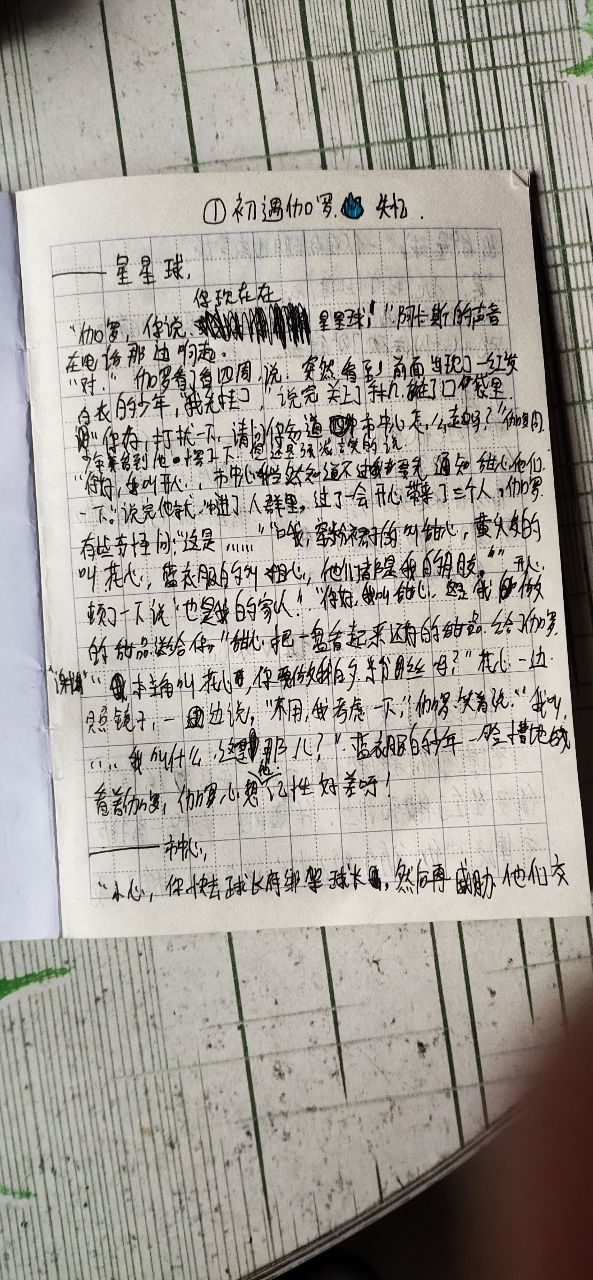 ①初遇伽罗 失忆.
——星星球,
你现在在
"伽罗，你说 星星球,""阿卡斯的声音
在电话那边响起。
"对." 伽罗看了看四周,说. 突然看到前面出现了一红发
白衣的少年,"我先挂了",说完关上了手机,
你好,打扰一下,请问你知道市中心怎么走吗?"伽罗问.
少年看到他
"你好,我叫开心,市中心我当然知道不过我要先通知甜心他们
一下."说完他就冲进了人群里,过了一会开心带来了三个人,伽罗
有些奇怪问:"这是……""哦,穿粉裙子的叫甜心,黄头发的
叫花心,蓝衣服的叫粗心,他们都是我的朋友."开心
顿了一下说"也是我的家人!""你好,我叫甜心.我做
的甜品送给你."甜心把一盘看起来还好的甜品给了伽罗.
本主角叫花心,你要做我的头号粉丝吗?"花心一边
照镜子,一边说,"不用,我考虑一下,"伽罗笑着说."我叫,
……我叫什么.这是那儿?"蓝衣服的少年一脸懵地
看着伽罗,伽罗心想他记性好差呀!
——市中心,
"小心,你快去球长府绑架球长,然后再威胁他们交